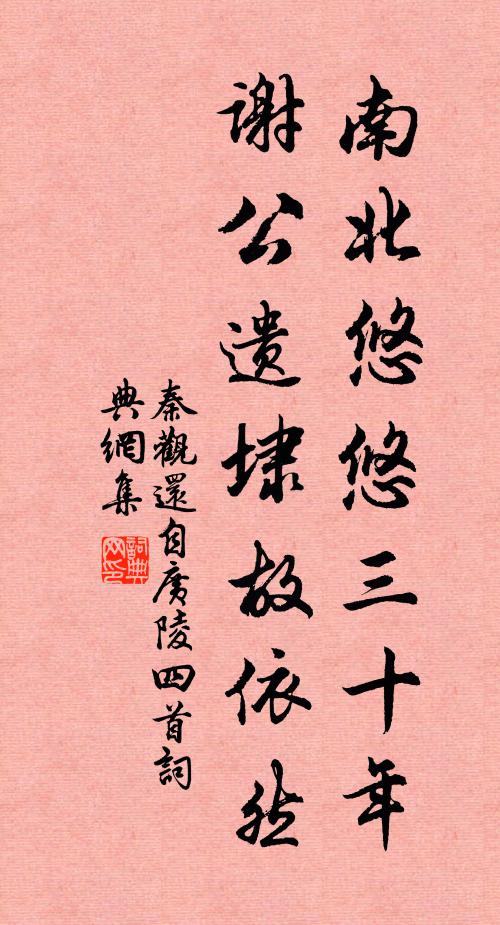 南北悠悠三十年
謝公遺埭故依然
秦觀還自廣陵四首詞
典網集
詞典
网印